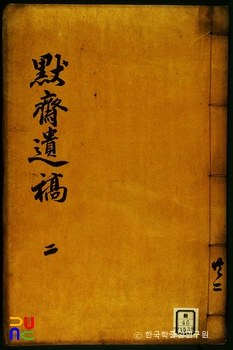 默齋遺稿
二
共二
ⓒ한국학중앙연구원